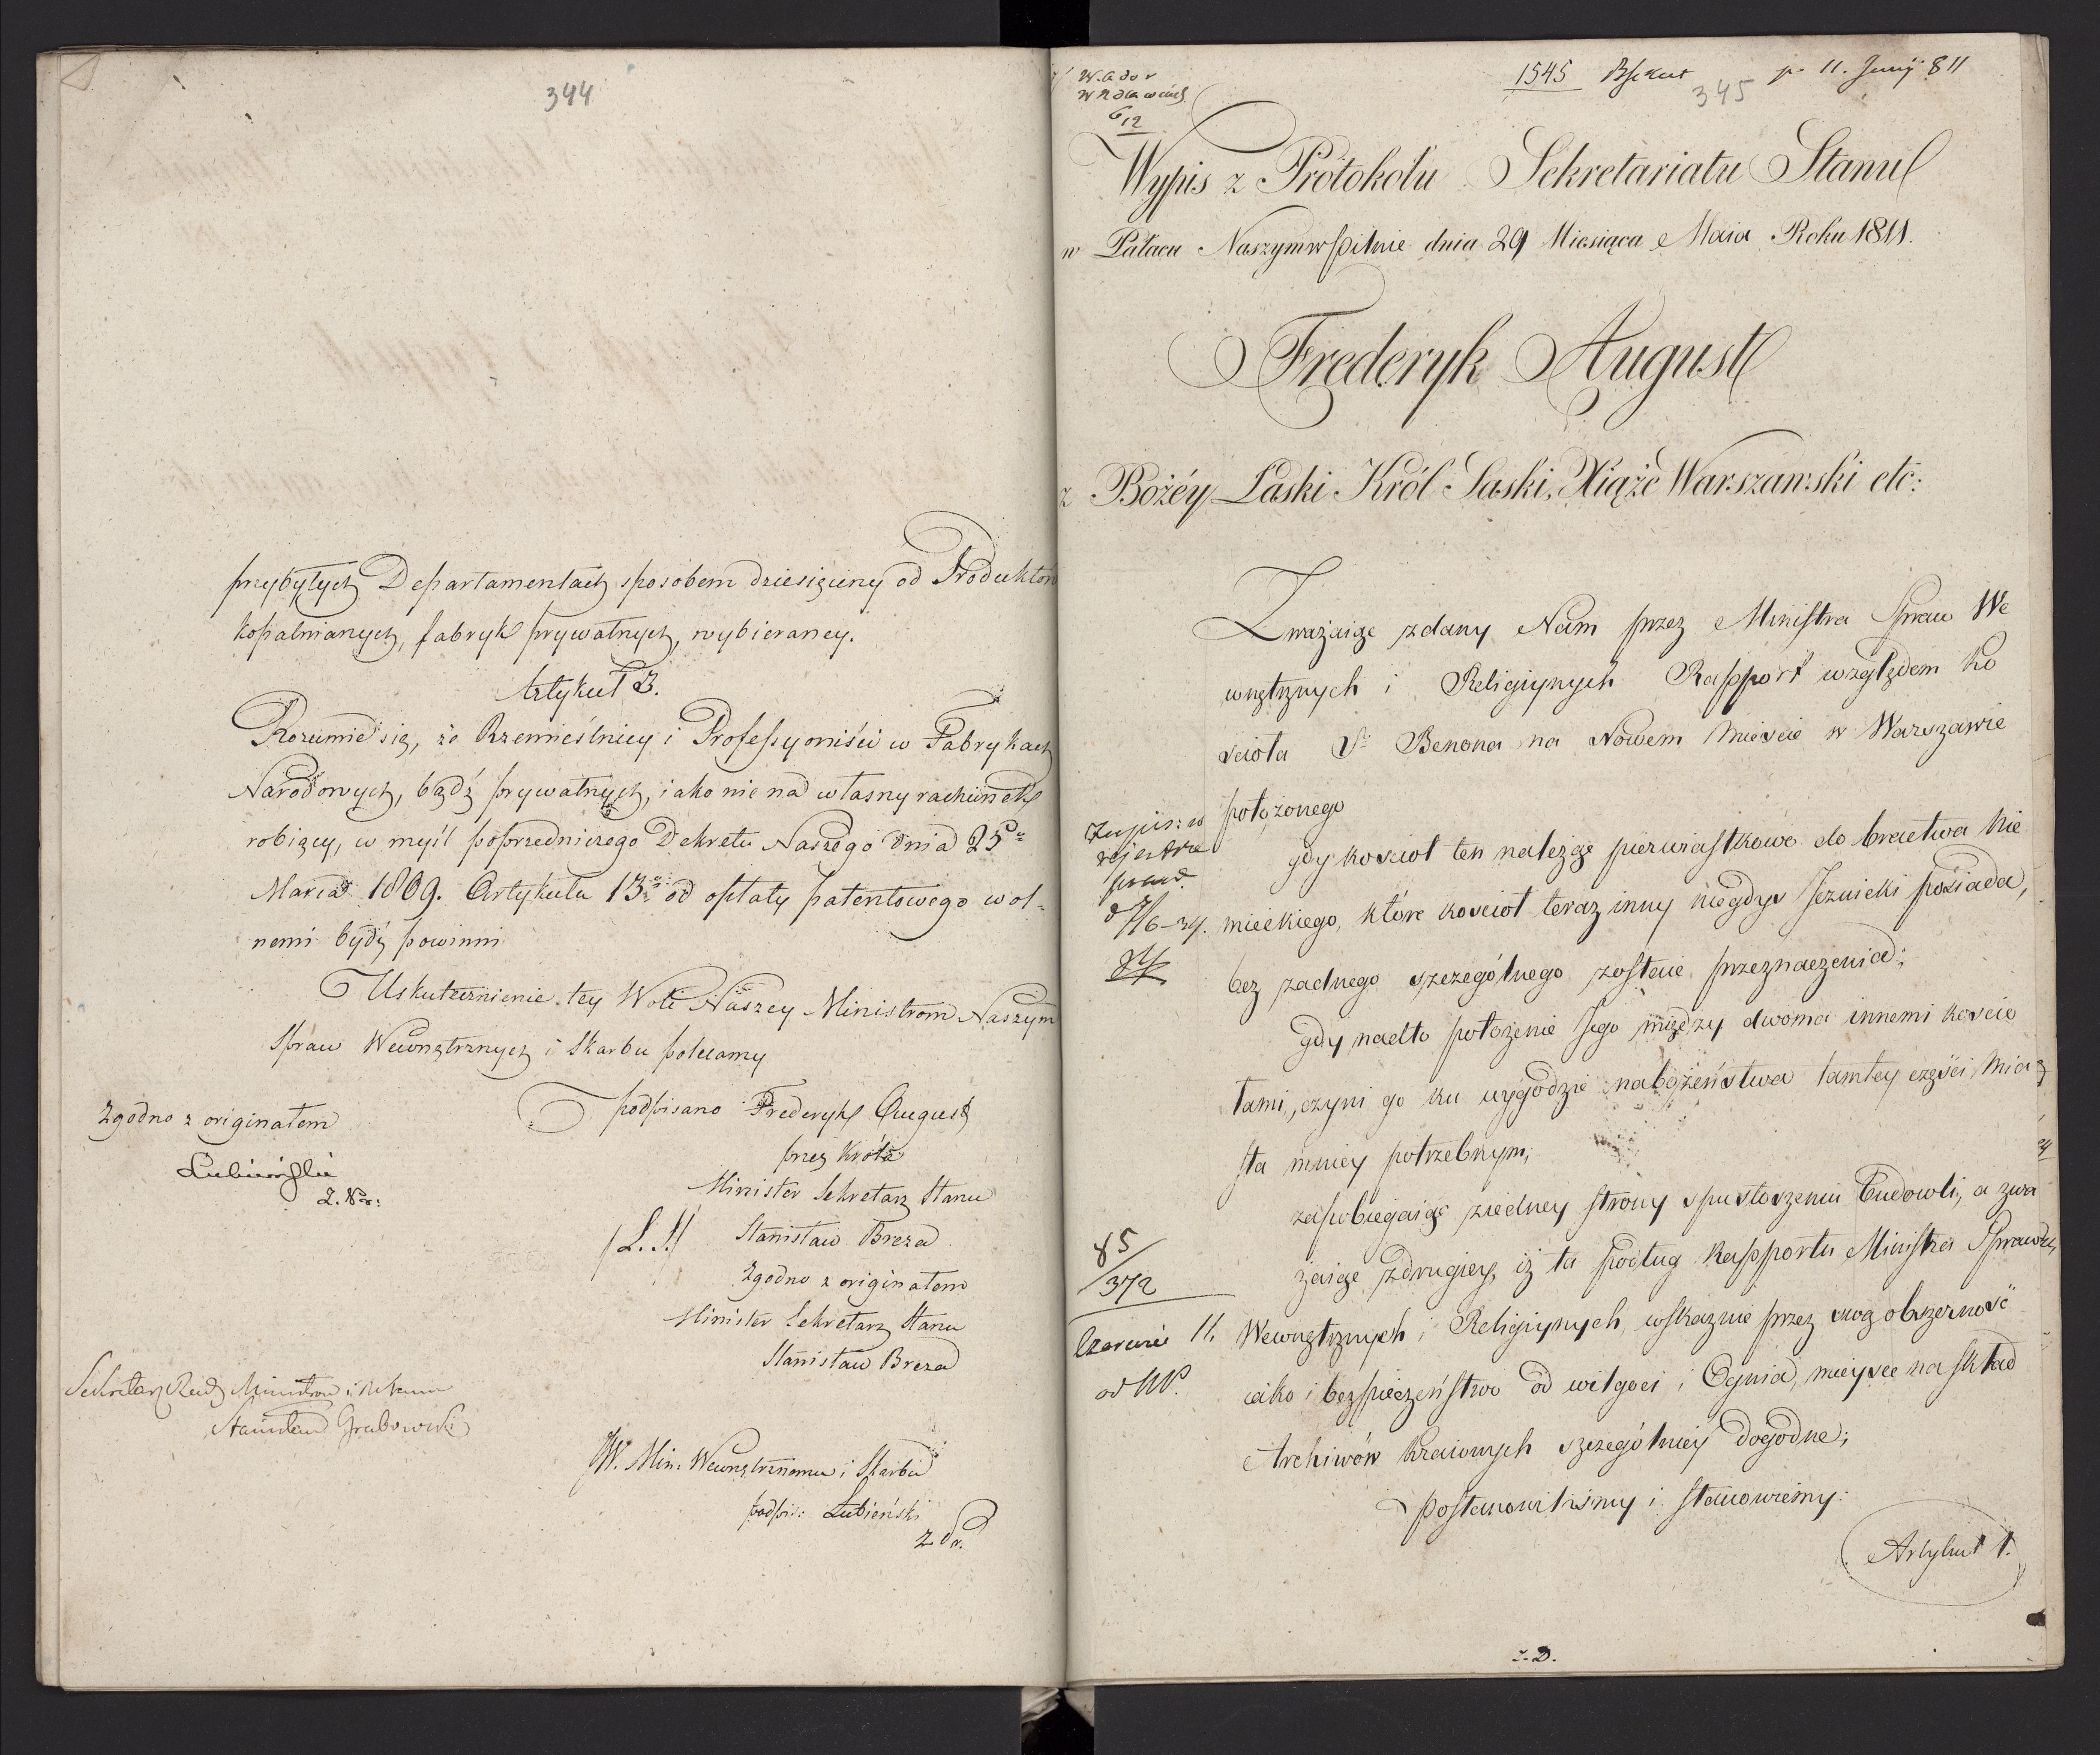 344
przybyłych Departamentach sposobem dziesięciny od Produktów
kopalnianych, fabryk prywatnych, wybieraney.
Artykuł 3.
Rozumie się, że Rzemieślnicy i Professyoniści w Fabrykach
Narodowych, bądź prywatnych, iako nie na własny rachunek
robiący, w myśl poprzedniczego Dekretu Naszego dnia 25º
Marca 1809. Artykułu 13º od opłaty patentowego wol-
nemi bydź powinni
Uskutecznienie tey Woli Naszey Ministrom Naszym
Spraw Wewnętrznych i Skarbu polecamy
podpisano Frederyk August
przez Króla
Minister Sekretarz Stanu
/L.S./ Stanisław Breza
Zgodno z originałem
Minister Sekretarz Stanu
Stanisław Breza
Zgodno z originałem
Lubieński
Sekretarz Rady Ministrów i
Stanisław Grabowski
JW. Min: Wewnętrznemu i Skarbu
podpis: Łubieński
1545 p. 11. Junij 811
345
612
Wypis z Protokołu Sekretariatu Stanu
w Pałacu Naszym w Pilnie dnia 29 Miesiąca Maia Roku 1811.
Frederyk August
z Bożéy Łaski Król Saski, Xiąże Warszawski etc:
Zważaiąc zdany Nam przez Ministra Spraw We
wnętrznych i Religiynych Rapport względem Ko
scioła S. Benona na Nowem Mieście w Warszawie
położonego
gdy kosciół ten należąc pierwiastkowo do bractwa Nie
mieckiego, które kosciół teraz inny niegdys Jezuicki posiada,
bez żadnego szczególnego zostaie przeznaczenia;
gdy nadto położenie Jego między dwoma innemi koscio
łami, czyni go ku wygodzie nabożeństwa tamtey części Mia
sta mniey potrzebnym;
zapobiegaiąc z iedney strony spustoszeniu Budowli, a zwa
żaiąc z drugiey, iż ta podług Rapportu Ministra Spraw
Wewnętrznych i Religiynych wskazuie przez swoą obszerność
iako i bezpieczeństwo od wilgoci i Ognia, mieysce na skład
Archiwów kraiowych szczególniey dogodne;
postanowiliśmy i stanowiemy:
Artykuł 1.
85/372
Czerwca 11.